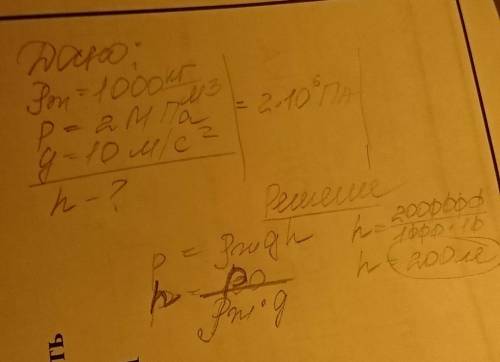 Дано:
ρж = 1000 кг/м3
p = 2 МПа = 2·10⁶ Па
g = 10 м/с²
h - ?
Решение
p = ρж g h
h = p / ρж·g
h = 2000000 / 1000·10
h = 200 м
ть